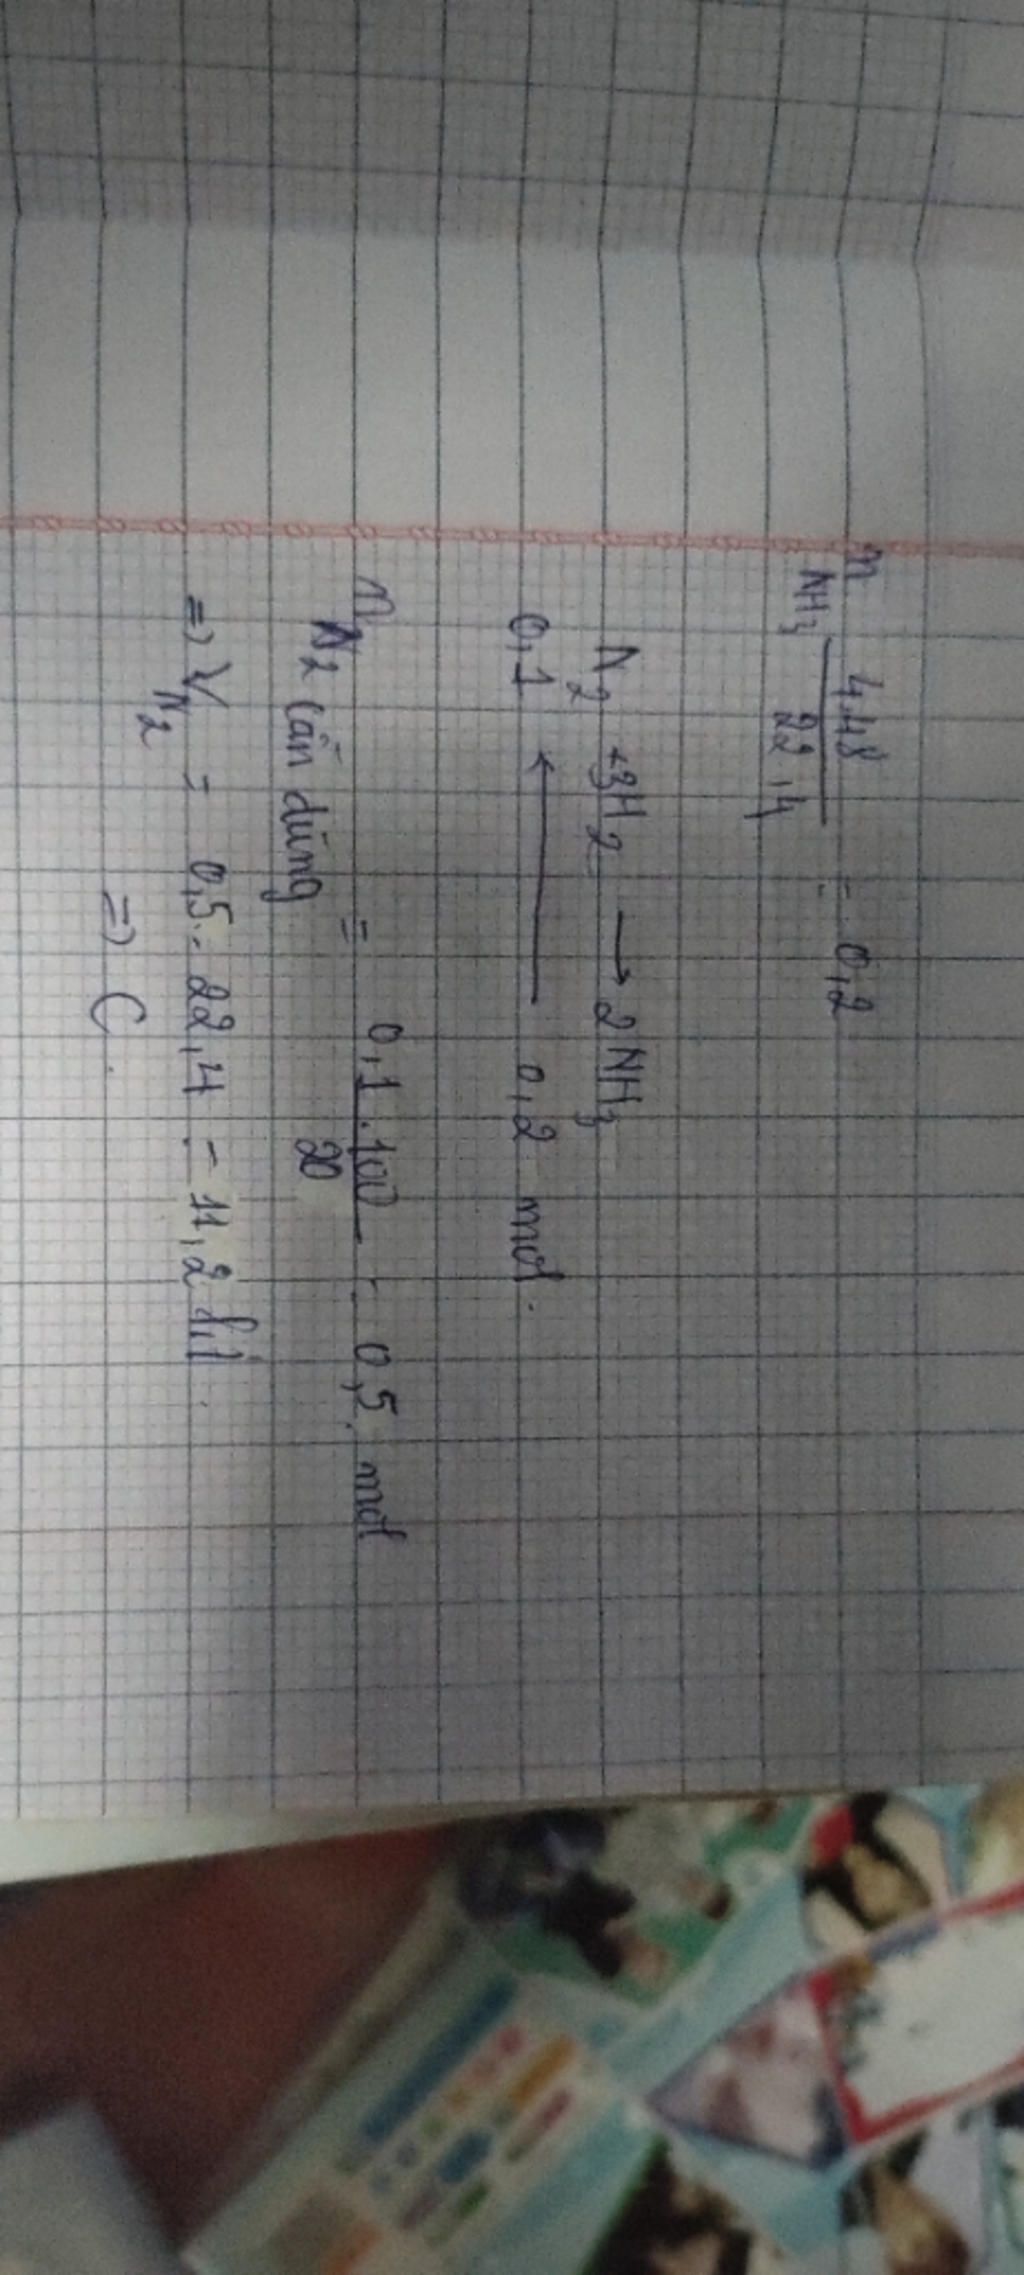 n NH3 4,48/22,4 = 0,2
N2 +3H2 → 2NH3
0,1 ← 0,2 mol.
n N2 cần dùng = 0,1.100/20 = 0,5 mol
=> V N2 = 0,5.22,4 = 11,2 lít.
=> C.